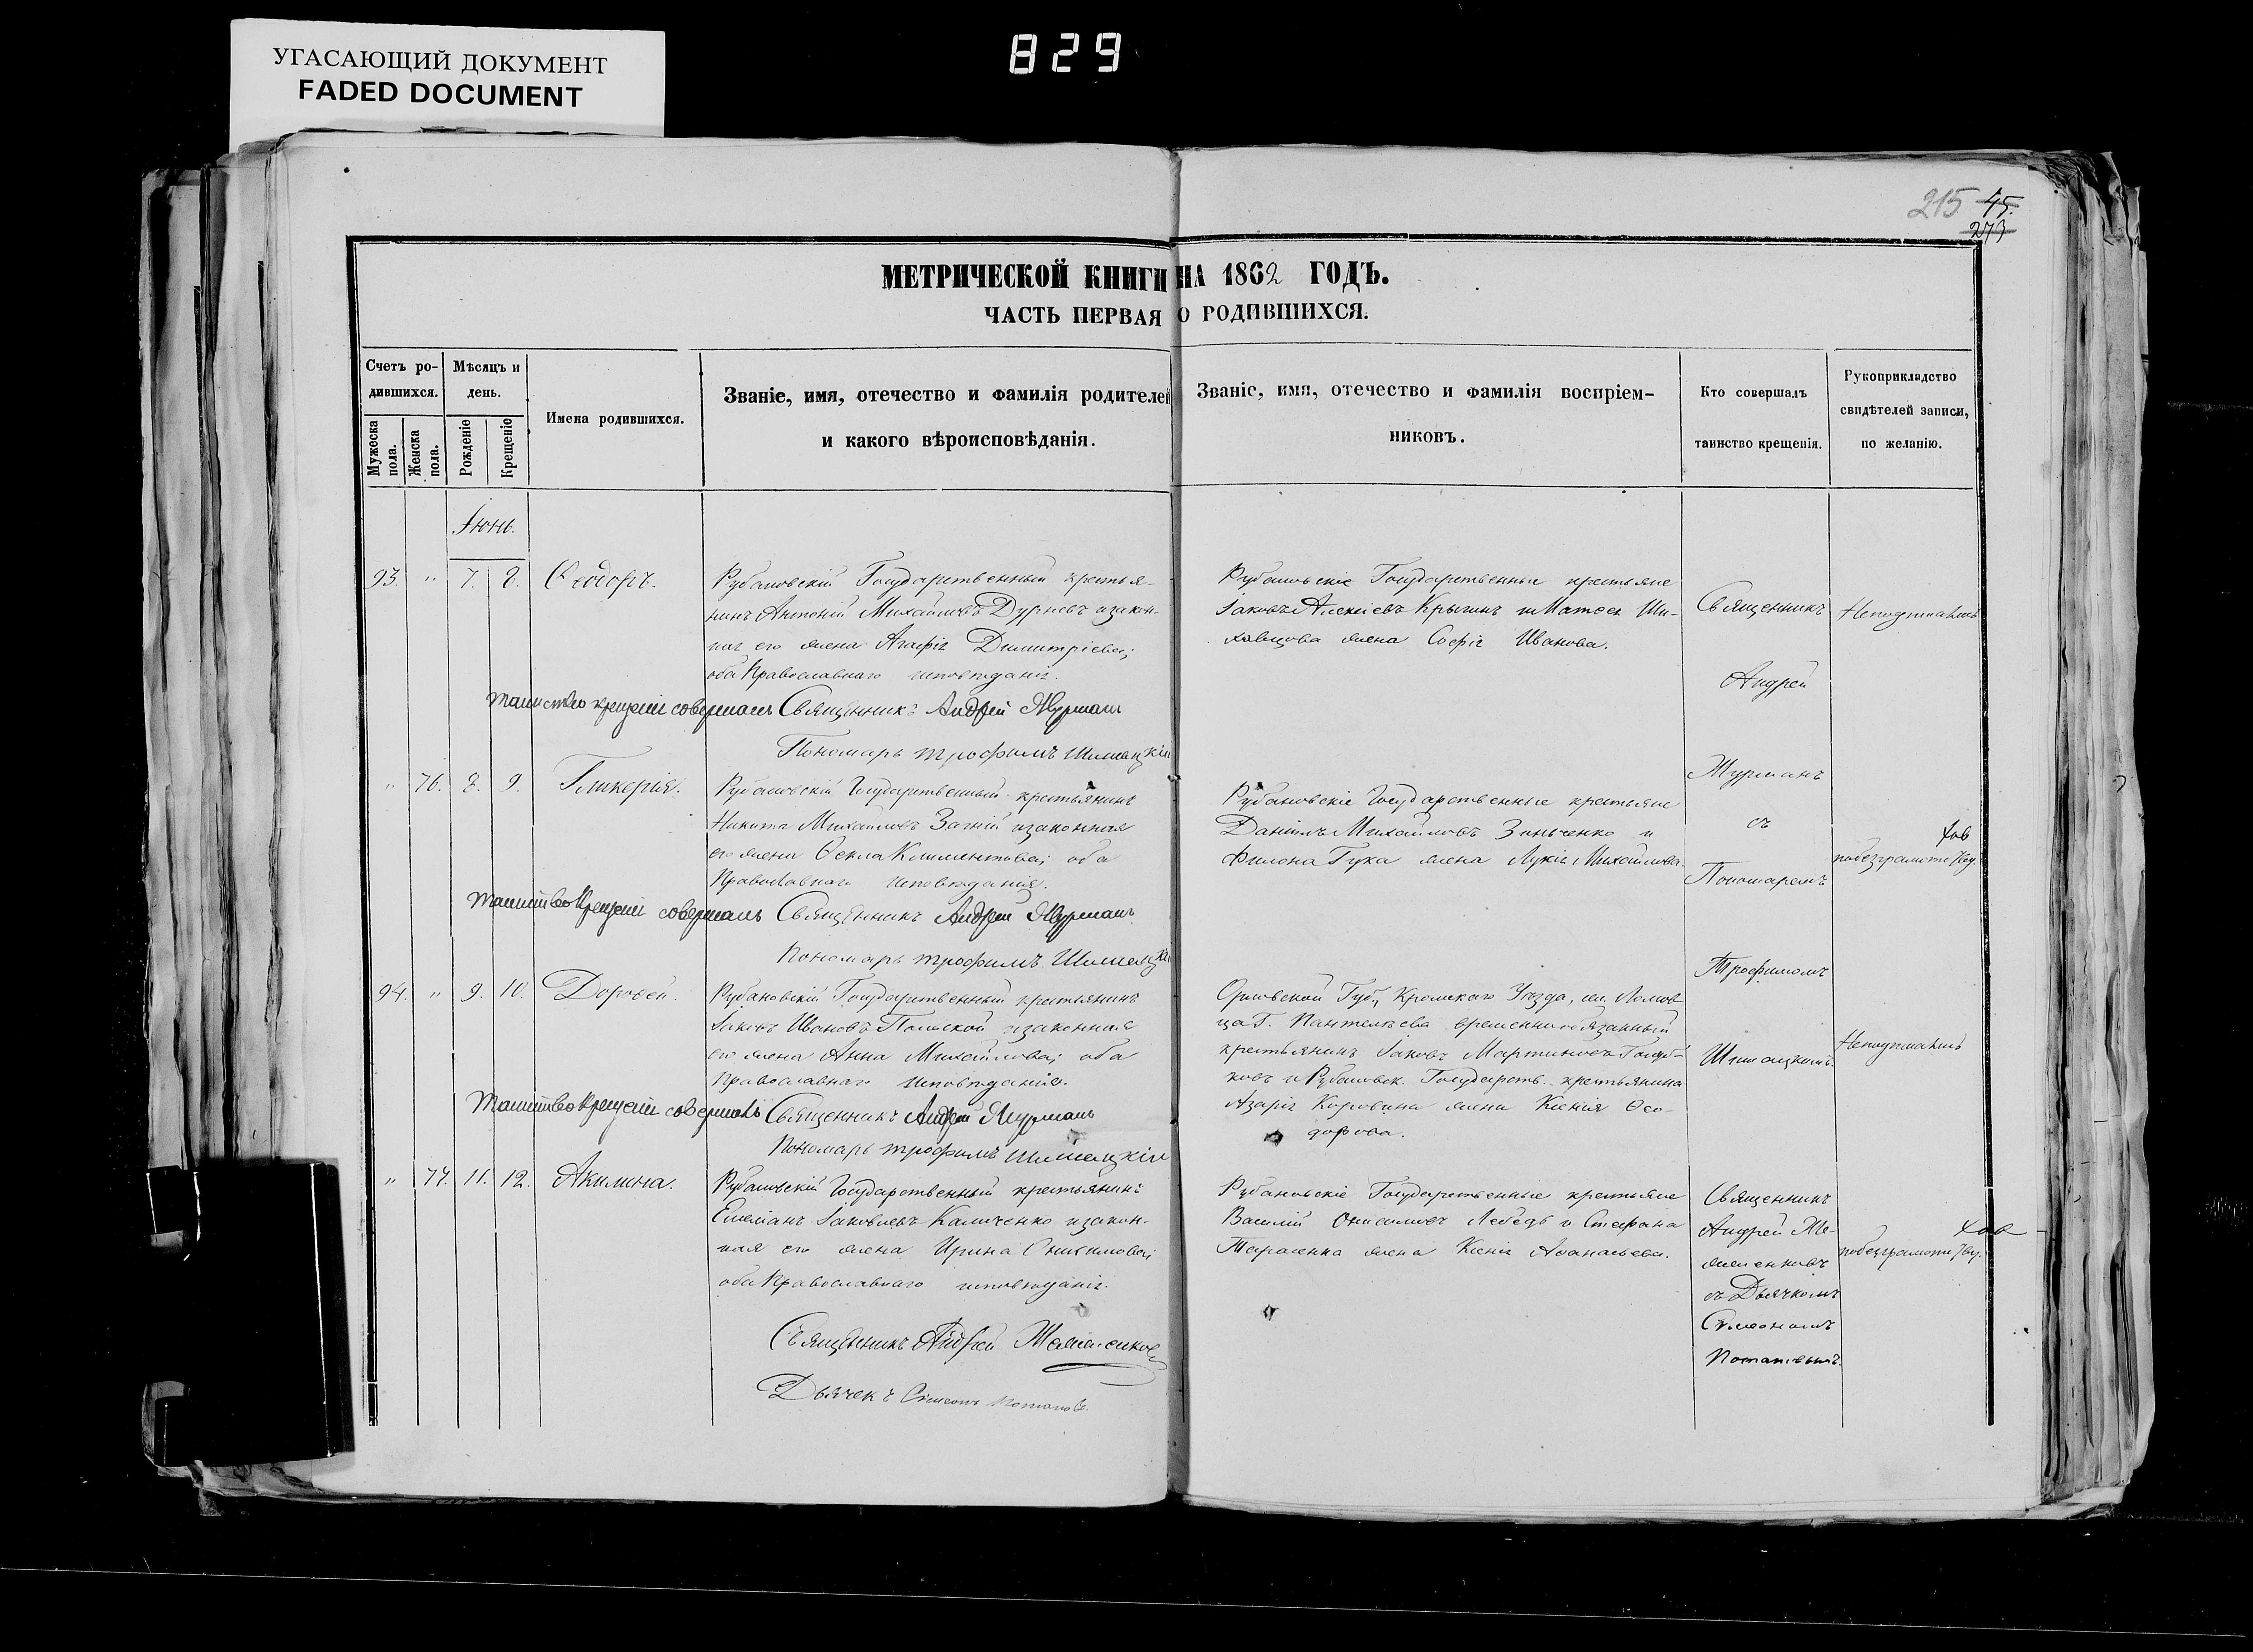 УГАСАЮЩИЙ ДОКУМЕНТ
FADED DOCUMENT
829
215 45.
273
МЕТРИЧЕСКОЙ КНИГИ НА 1862 ГОДЪ.
ЧАСТЬ ПЕРВАЯ О РОДИВШИХСЯ.
Счетъ ро-
дившихся.
Мужеска пола.
Женска пола.
Мѣсяцъ и
день.
Рожденіе
Крещеніе
Имена родившихся.
Званіе, имя, отечество и фамилія родителей
и какого вѣроисповѣданія.
Званіе, имя, отечество и фамилія воспріем-
никовъ.
Кто совершалъ
таинство крещенія.
Рукоприкладство
свидѣтелей записи,
по желанію.
Іюнь.
93. " 7. 8. Ѳеодоръ.
Рубановскій Государственный крестья-
нинъ Антоній Михайловъ Дурневъ и закон-
ная его жена Агафія Димитріева;
оба Православнаго исповѣданія.
Рубановскіе Государственные крестьяне
Іаковъ Алексіевъ Крыгинъ и Матѳея Ши-
жена Софія Иванова.
Таинство крещенія совершалъ Священникъ Андрей Журманъ
Пономарь Трофимъ
Священникъ
Андрей
Журманъ
съ
Пономаремъ
Трофимомъ
" 76. 8. 9. Гликерія.
Рубановскій Государственный крестьянинъ
Никита Михайловъ и законная
его жена Ѳекла Климентова; оба
Православнаго исповѣданія.
Рубановскіе Государственные крестьяне
Даніилъ Михайловъ Зинченко и
Филона Гука жена Лукія Михайлова.
по безграмотству
Таинство Крещенія совершалъ Священникъ Андрей Журманъ
Пономарь Трофимъ
94. " 9. 10. Дороѳей.
Рубановскій Государственный крестьянинъ
Іаковъ Ивановъ и законная
его жена Анна Михайлова; оба
Православнаго исповѣданія.
Орловской Губ, Кромскаго Уѣзда,
Пантелѣева временнообязанный
крестьянинъ Іаковъ Мартиновъ
и Рубановск. Государств. крестьянина
Азарія Коровина жена Ксенія Ѳео-
дорова.
Таинство Крещенія совершалъ Священникъ Андрей Журманъ
Пономарь Трофимъ
" 77. 11. 12. Акилина.
Рубановскій Государственный крестьянинъ
Емеліанъ Іаковлевъ Каличенко и закон-
ная его жена Ирина Онисимова;
оба Православнаго исповѣданія.
Рубановскіе Государственные крестьяне
Василій Онисимовъ Лебедь и Стефана
Тарасенка жена Ксенія Аѳанасьева.
Священникъ
Андрей Же-
съ Дьячкомъ
Сѵмеономъ
Потаповымъ.
по безграмотству
Священникъ Андрей
Дьячекъ Сѵмеонъ Потаповъ.